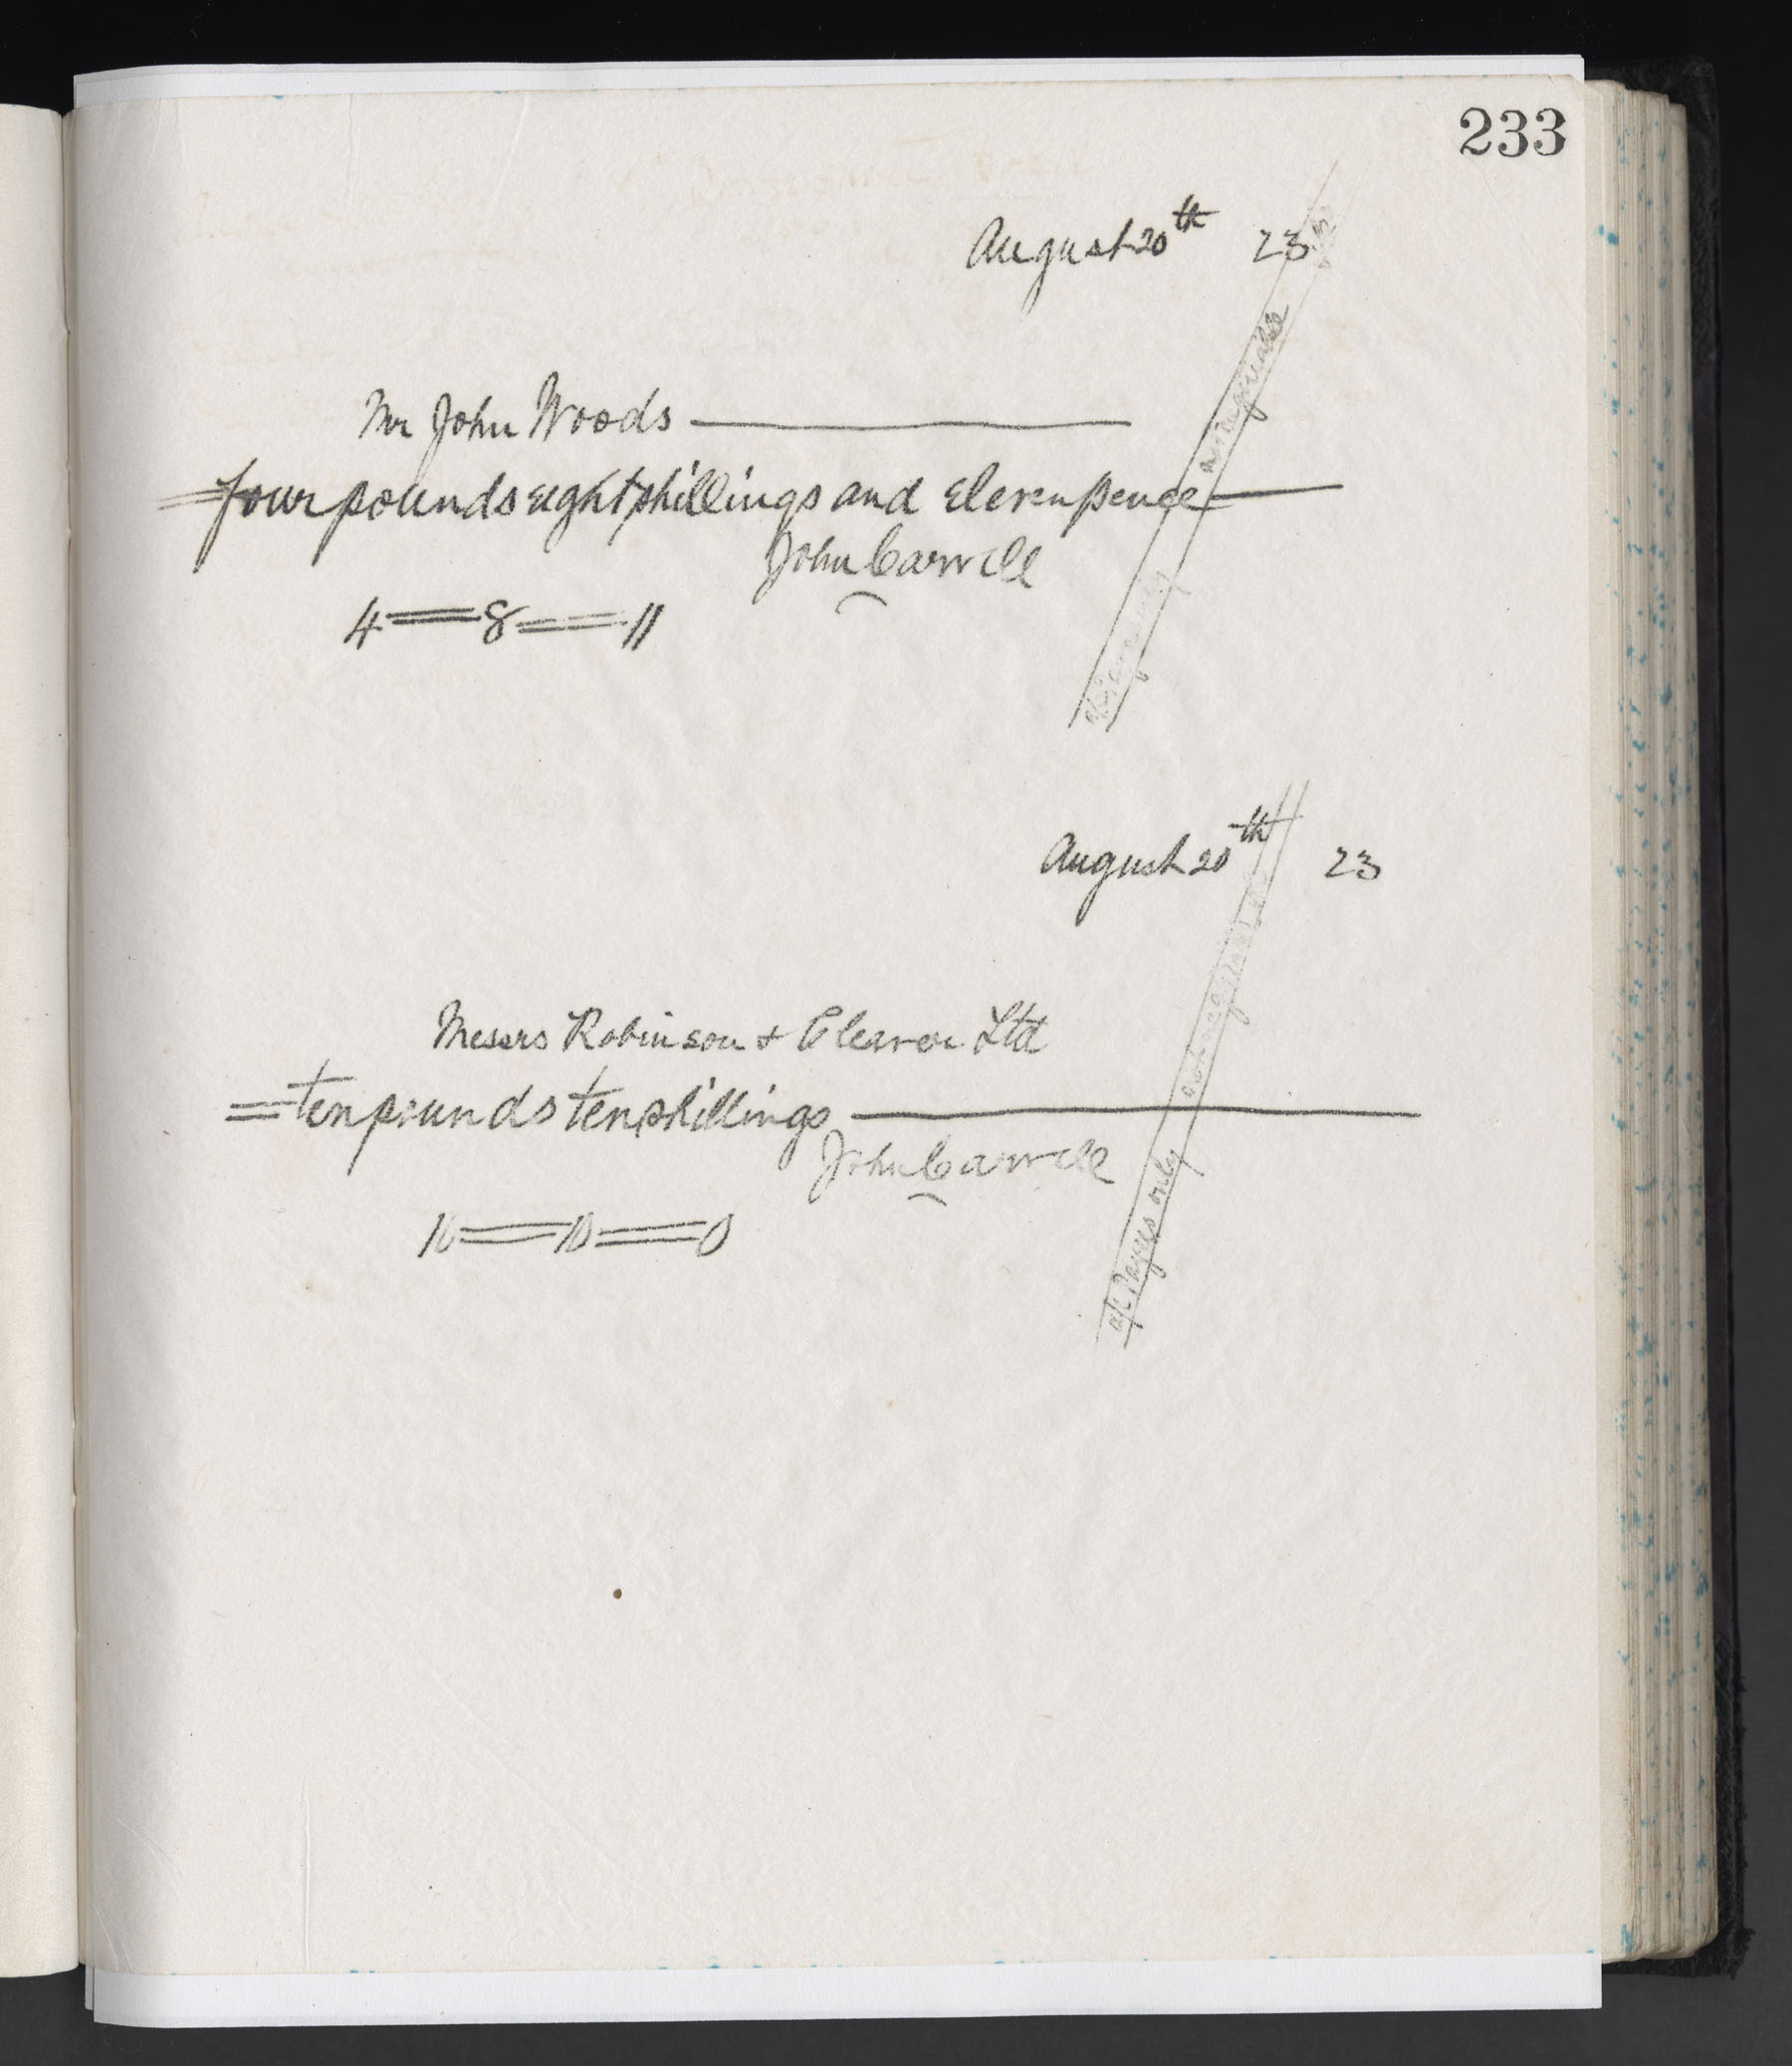 233
August 20th 23
Mr John Woods
four pounds eight shillings and eleven pence
John Carvill
4 = 8 = 11
not negotiable
August 20th 23
Messrs Robinson + Cleaver Ltd
= ten pounds ten shillings
John Carvill
10 = 10 = 0
a/c Payees only